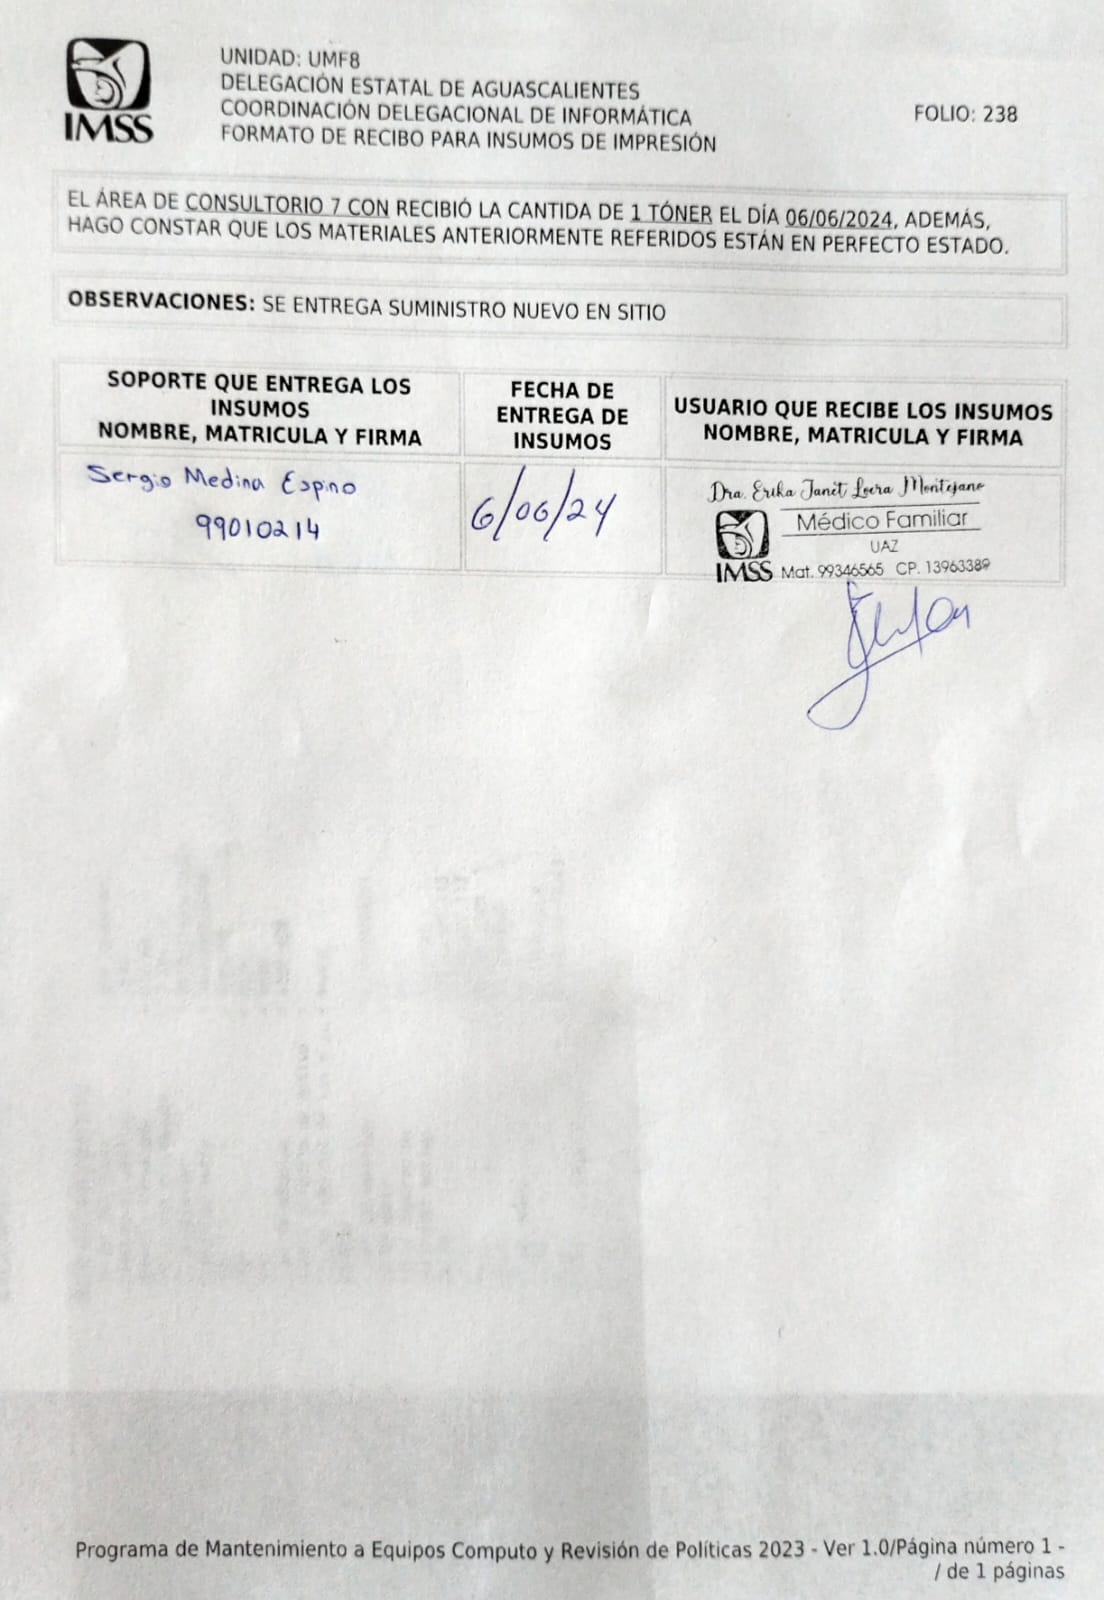 IMSS
UNIDAD: UMF8
DELEGACIÓN ESTATAL DE AGUASCALIENTES
COORDINACIÓN DELEGACIONAL DE INFORMÁTICA
FORMATO DE RECIBO PARA INSUMOS DE IMPRESIÓN
FOLIO: 238
EL ÁREA DE CONSULTORIO 7 CON RECIBIÓ LA CANTIDA DE 1 TÓNER EL DÍA 06/06/2024, ADEMÁS,
HAGO CONSTAR QUE LOS MATERIALES ANTERIORMENTE REFERIDOS ESTÁN EN PERFECTO ESTADO.
OBSERVACIONES: SE ENTREGA SUMINISTRO NUEVO EN SITIO
SOPORTE QUE ENTREGA LOS
INSUMOS
NOMBRE, MATRICULA Y FIRMA
FECHA DE
ENTREGA DE
INSUMOS
USUARIO QUE RECIBE LOS INSUMOS
NOMBRE, MATRICULA Y FIRMA
Sergio Medina Espino
99010214
6/06/24
Dra. Erika Janet Loera Montejano
Médico Familiar
UAZ
IMSS Mat. 99346565 CP. 13963389
Programa de Mantenimiento a Equipos Computo y Revisión de Políticas 2023 - Ver 1.0/Página número 1 -
/ de 1 páginas